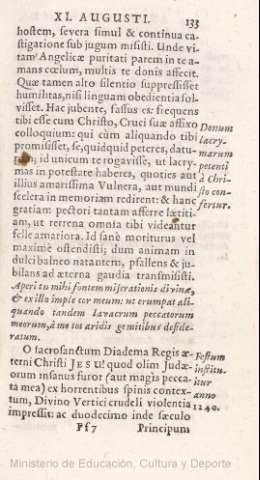 XI. AUGUSTI. 133
hostem, severa simul & continua ca-
stigatione sub jugum misisti. Unde vi-
tam Angelicæ puritati parem in te a-
mans cœlum, multis te donis affecit.
Quæ tamen alto silentio suppressisset
humilitas, nisi linguam obedientia sol-
visset. Hac jubente, fassus es: frequens
tibi esse cum Christo, Cruci suæ affixo
colloquium: qui cùm aliquando tibi
promisisset, se, quidquid peteres, datu-
id unicum te rogavisse, ut lacry-
mas in potestate haberes, quoties aut
illius amarissima Vulnera, aut mundi
scelera in memoriam redirent: & hanc
gratiam pectori tantam afferre lætiti-
am, ut terrena omnia tibi videantur
felle amariora. Id sanè moriturus vel
maximè ostendisti; dum animam in
dulci balneo natantem, psallens & ju-
bilans ad æterna gaudia transmisisti.
Aperi tu mihi fontem miserationis divinæ,
& ex illo imple cor meum: ut erumpat ali-
quando tandem lavacrum peccatorum
meorum, à me tot aridis gemitibus deside-
ratum.
Donum
lacry-
marum
petenti
à Chri-
sto con-
fertur.
O sacrosanctum Diadema Regis æ-
terni Christi JESU! quod olim Judæ-
orum insanus furor (aut magis pecca-
ta mea) ex horrentibus spinis contex-
tum, Divino Vertici crudeli violentia
impressit: ac duodecimo inde sæculo
Festum
institu-
itur
anno
1240.
Pf7 Principum
Ministerio de Educación, Cultura y Deporte